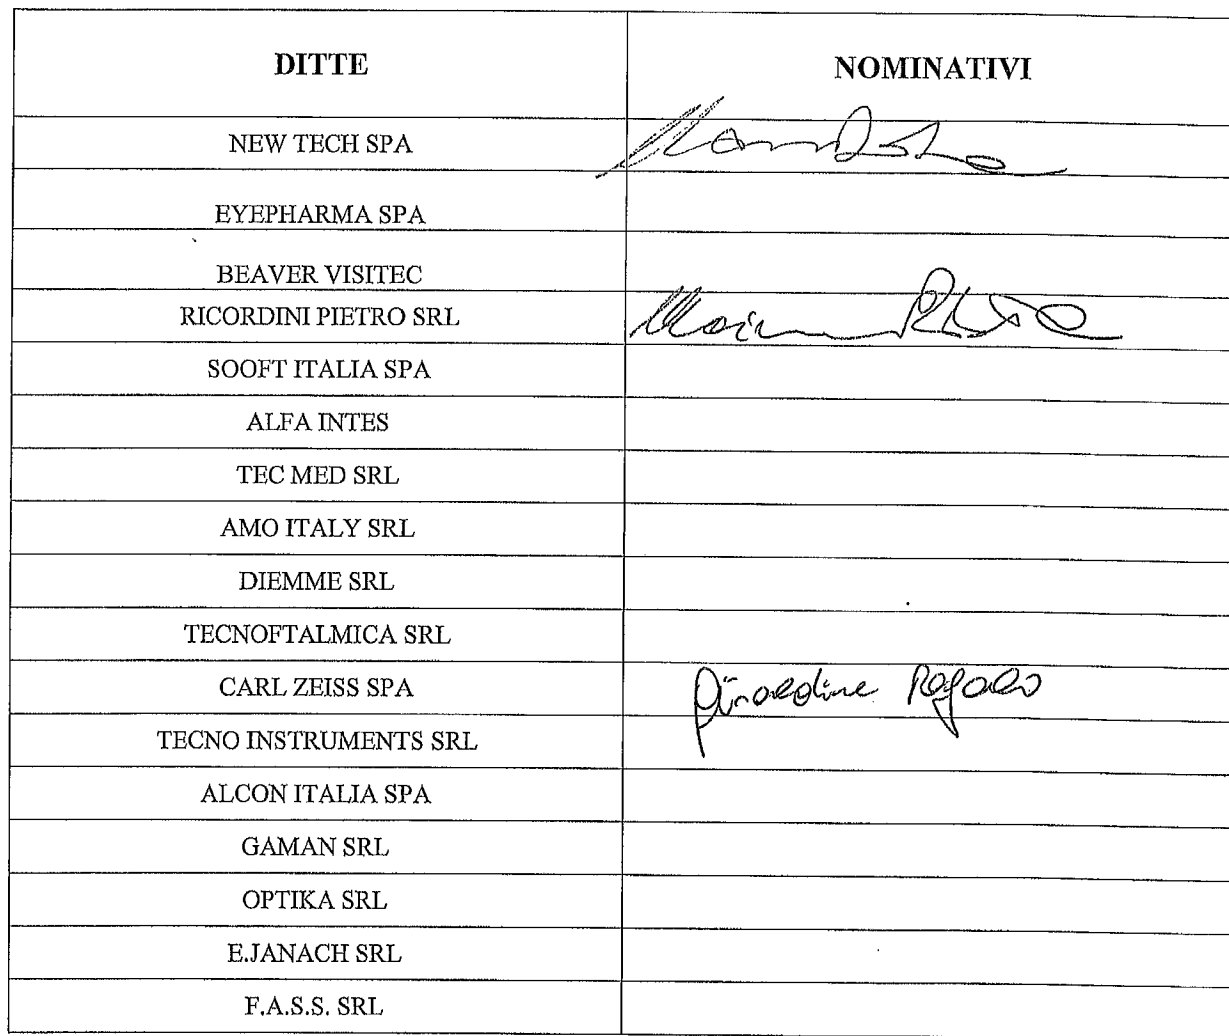 DITTE NOMINATIVI
NEW TECH SPA
EYEPHARMA SPA
BEAVER VISITEC
RICORDINI PIETRO SRL
SOOFT ITALIA SPA
ALFA INTES
TEC MED SRL
AMO ITALY SRL
DIEMME SRL
TECNOFTALMICA SRL
CARL ZEISS SPA
TECNO INSTRUMENTS SRL
ALCON ITALIA SPA
GAMAN SRL
OPTIKA SRL
E.JANACH SRL
F.A.S.S. SRL